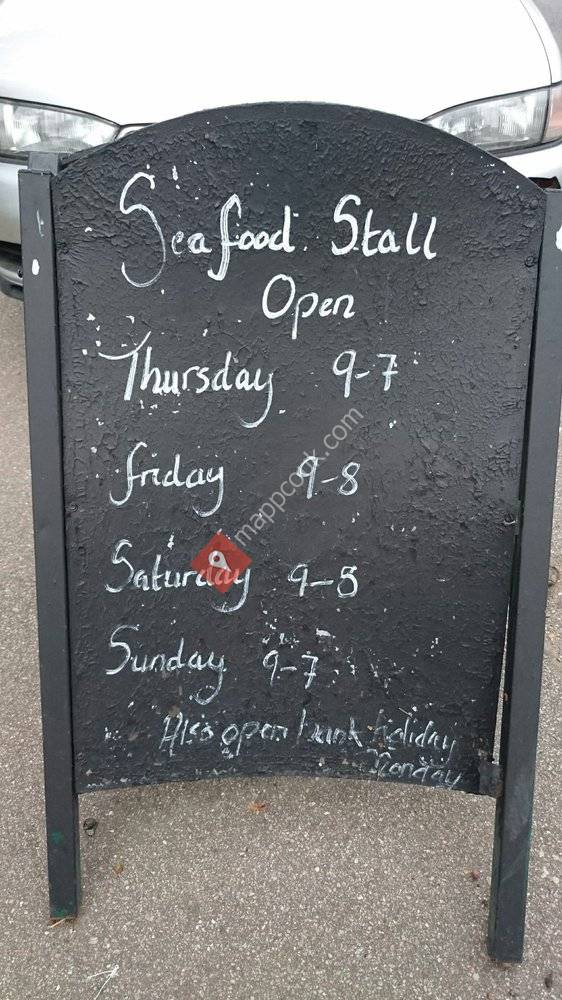 Seafood Stall
Open
Thursday 9-7
friday 9-8
Saturday 9-5
Sunday 9-7
Also open bank holiday
Monday
mappcool.com